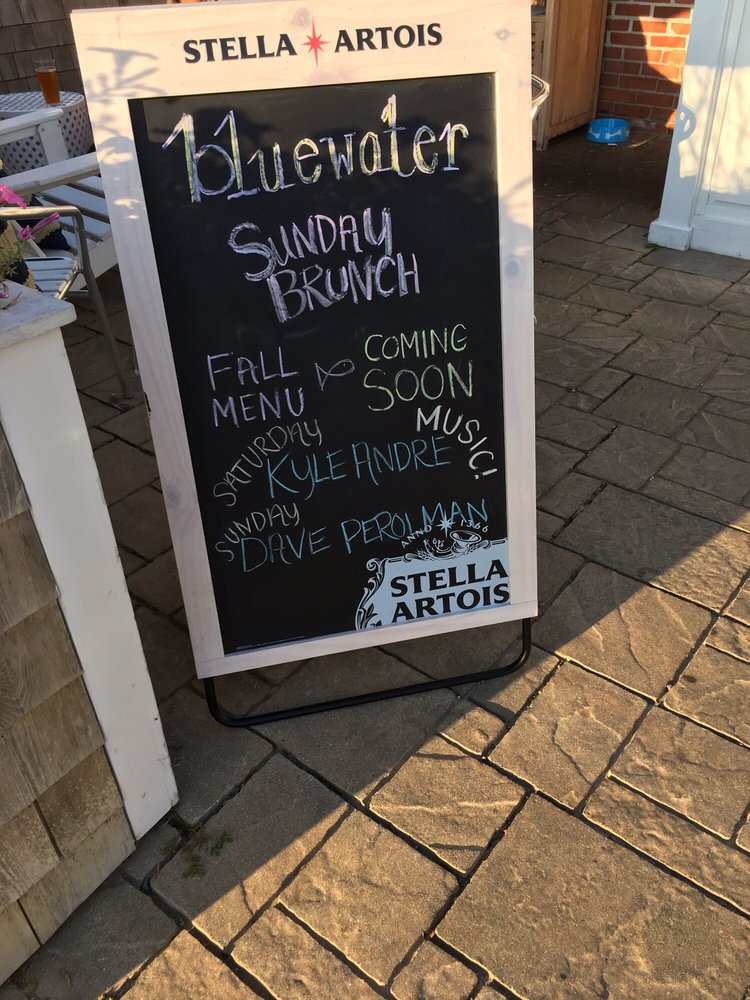 STELLA ARTOIS
bluewater
SUNDAY
BRUNCH
FALL
MENU
COMING
SOON
MUSIC!
SATURDAY
KYLE ANDRE
SUNDAY
DAVE PEROLMAN
ANNO 1366
STELLA
ARTOIS